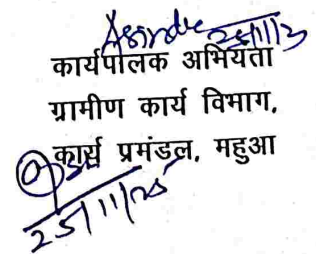 25/11/25
कार्यपालक अभियंता
ग्रामीण कार्य विभाग,
कार्य प्रमंडल, महुआ
25/11/25